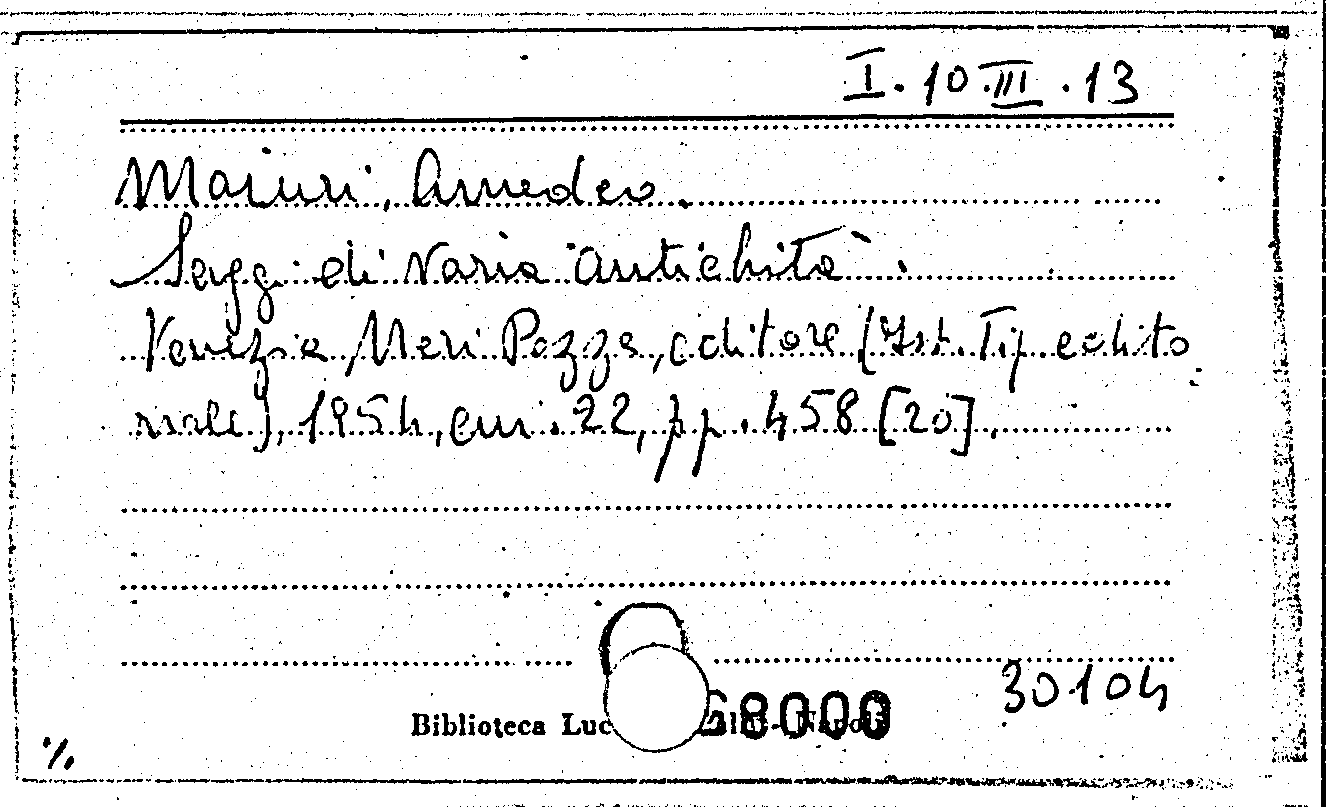 I. 10 III . 13
Maiuri, Amedeo.
Saggi di Varia Antichità.
Venezia, Neri Pozza, editore (Ist. Tip. edito
riale), 1954, cm. 22, pp. 458 [20].
30104
Biblioteca Luc 68000
%